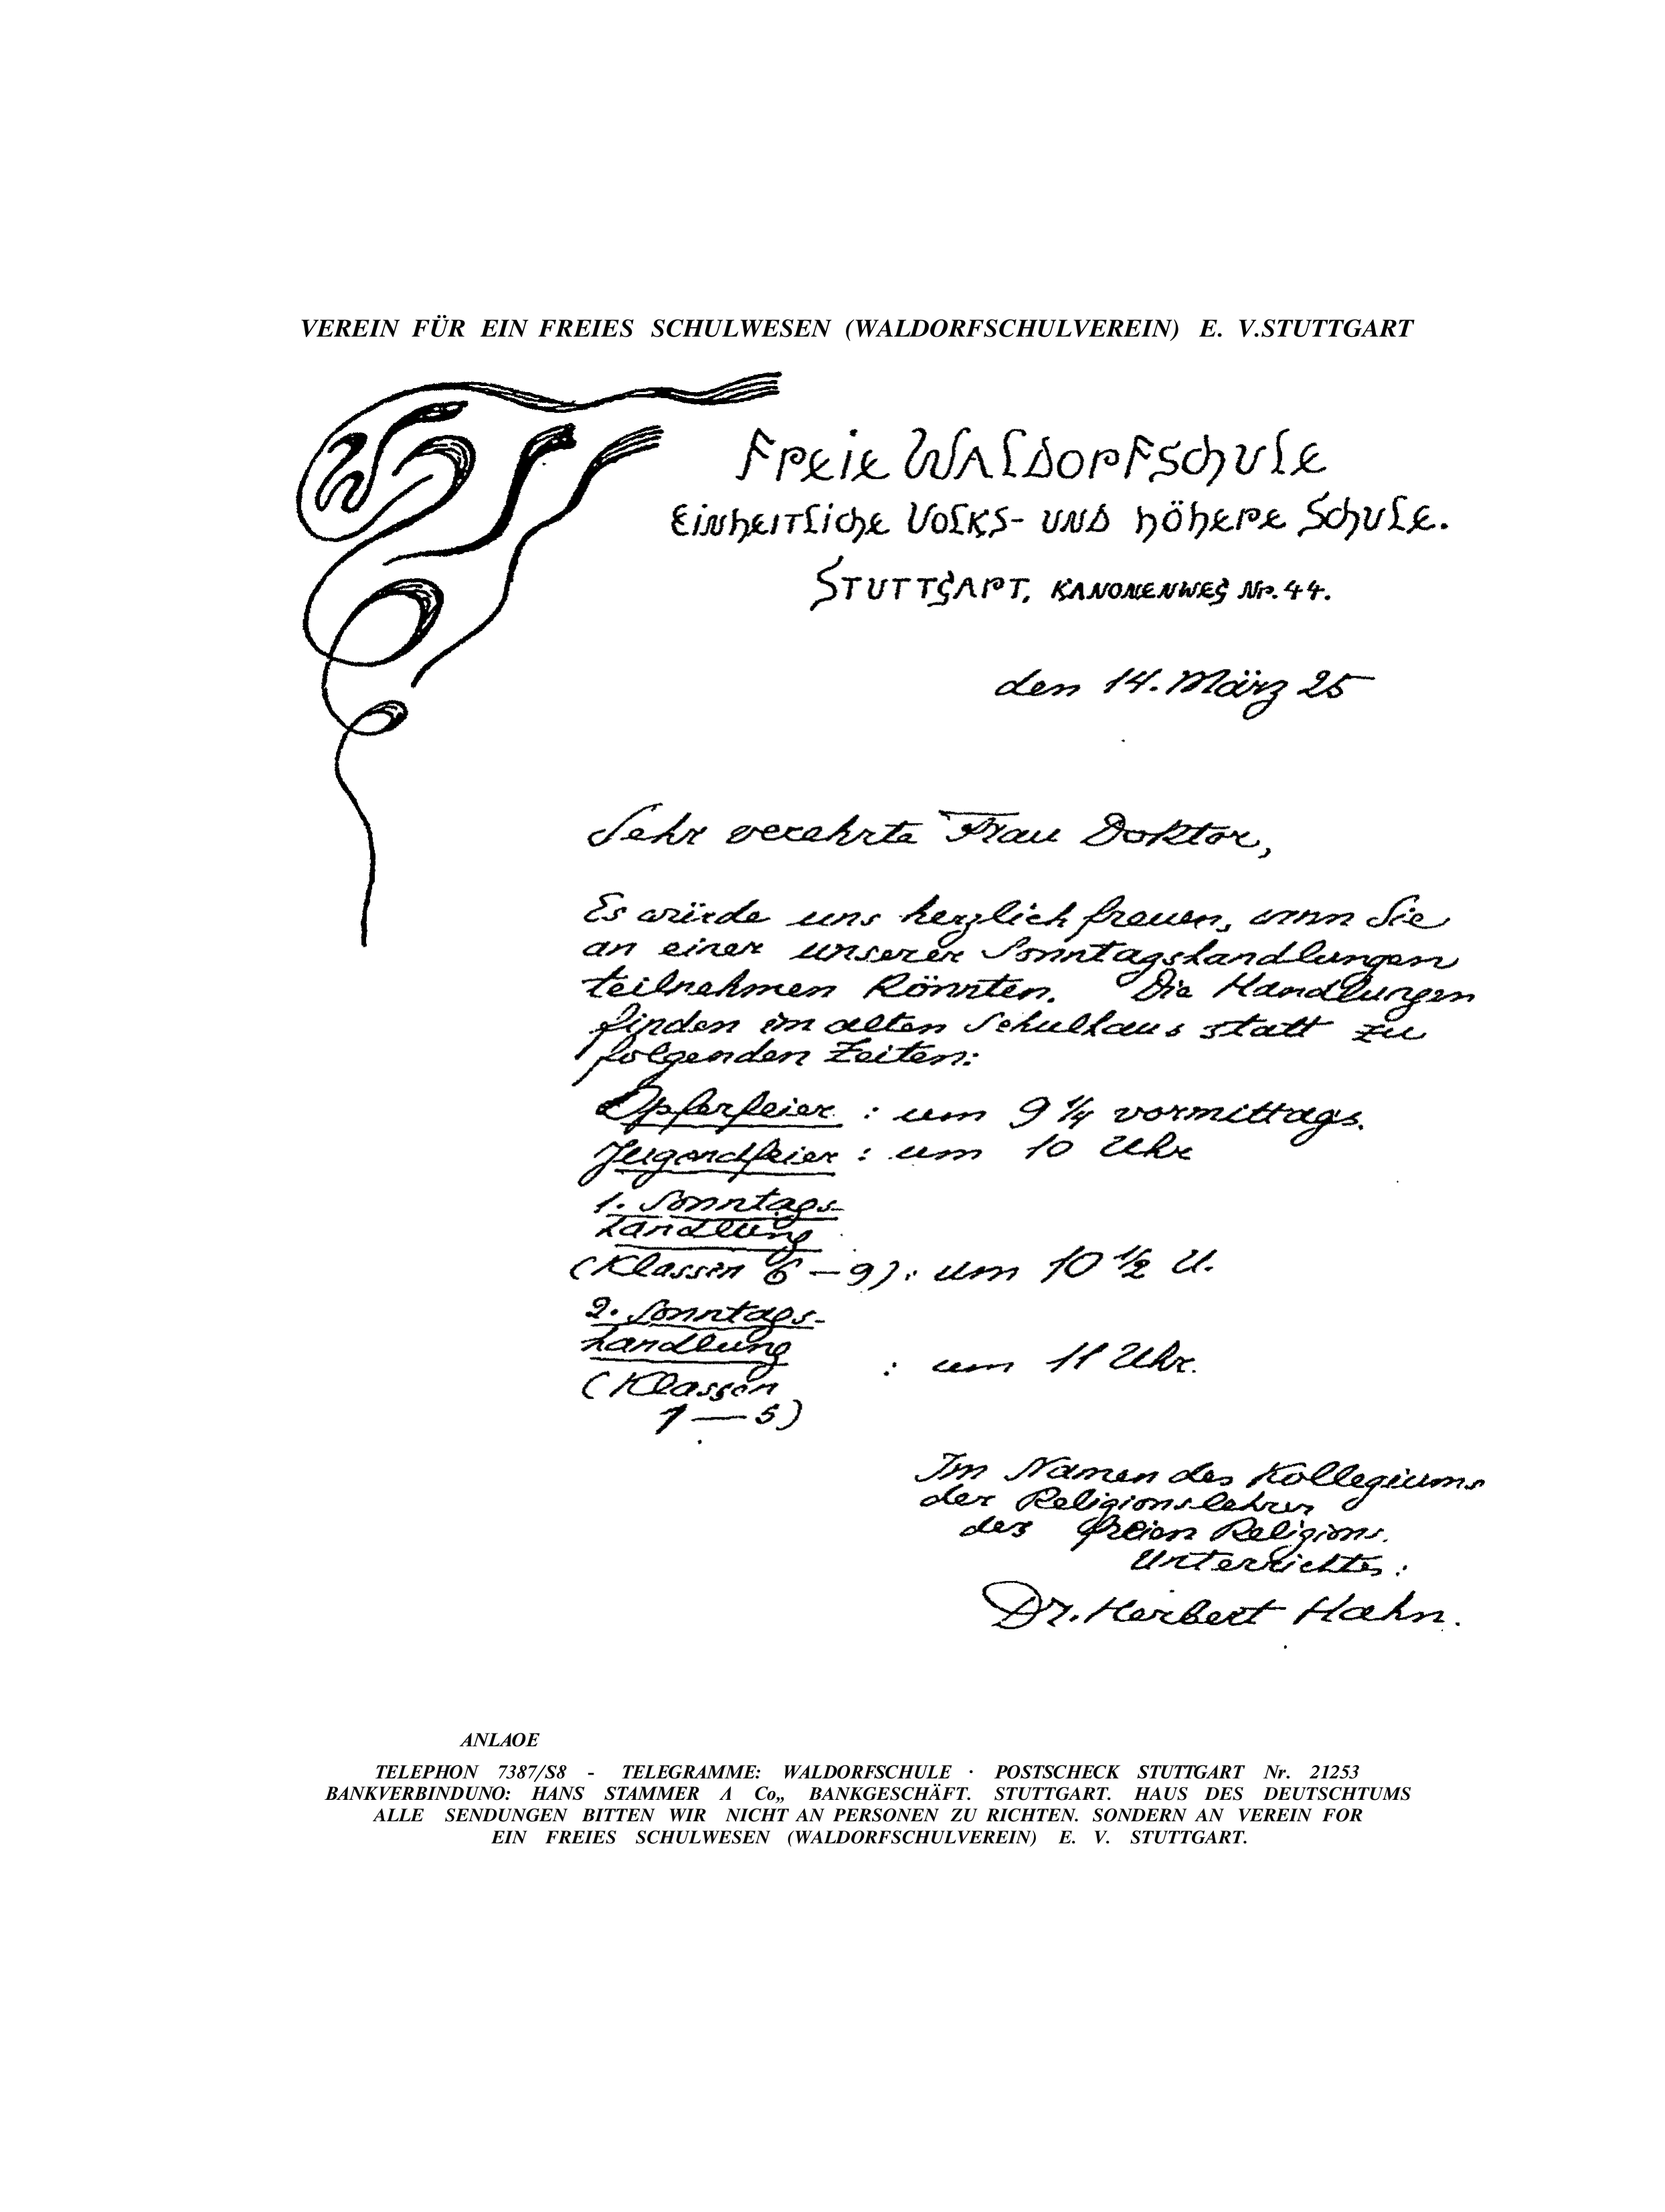 VEREIN FÜR EIN FREIES SCHULWESEN (WALDORFSCHULVEREIN) E. V.STUTTGART
Freie Waldorfschule
Einheitliche Volks- und höhere Schule.
Stuttgart, Kanonenweg Nr. 44.
den 14. März 25
Sehr verehrte Frau Doktor,
Es würde uns herzlich freuen, wenn Sie
an einer unserer Sonntagshandlungen
teilnehmen könnten. Die Handlungen
finden im alten Schulhaus statt zu
folgenden Zeiten:
Opferfeier : um 9 1/4 vormittags.
Jugendfeier : um 10 Uhr
1. Sonntags-
handlung
(Klassen 6 – 9) : um 10 1/2 U.
2. Sonntags-
handlung
: um 11 Uhr.
(Klassen
1 — 5)
Im Namen des Kollegiums
der Religionslehrer
des freien Religions.
Unterrichtes :
Dr. Herbert Hahn.
ANLAOE
TELEPHON 7387/S8 - TELEGRAMME: WALDORFSCHULE · POSTSCHECK STUTTGART Nr. 21253
BANKVERBINDUNO: HANS STAMMER Λ Co„ BANKGESCHÄFT. STUTTGART. HAUS DES DEUTSCHTUMS
ALLE SENDUNGEN BITTEN WIR NICHT AN PERSONEN ZU RICHTEN. SONDERN AN VEREIN FOR
EIN FREIES SCHULWESEN (WALDORFSCHULVEREIN) E. V. STUTTGART.